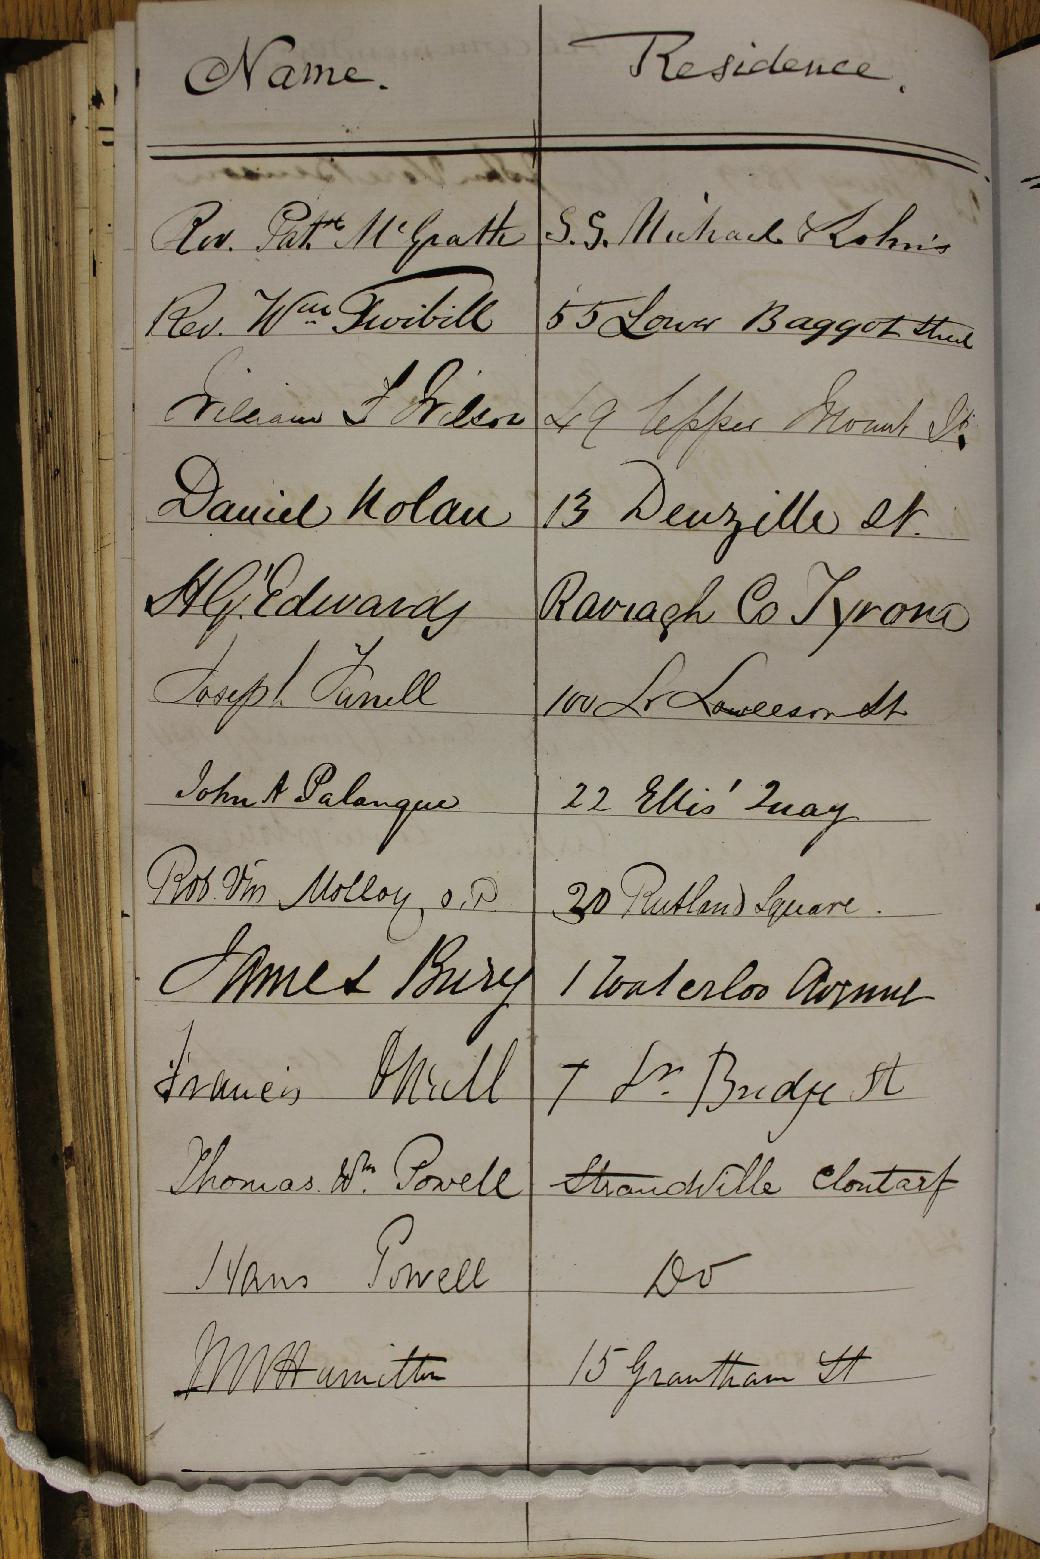 Name. Residence.
Rev. Patk McGrath S.S. Michael & John's
Rev. Wm Twibill 55 Lower Baggot Street
William F Wilson 49 Upper Mount St.
Daniel Nolan 13 Denzille St.
H G Edwards Co Tyrone
Joseph 100 Lr St
John A Palangue 22 Ellis' Quay
Rob. Vin Molloy 20 Rutland Square.
James Bury 1 Waterloo Avenue
Francis O'Neill 7 Lr Bridge St
Thomas Wm. Powell Strandville Clontarf
Hans Powell Do
Hamilton 15 Grantham St